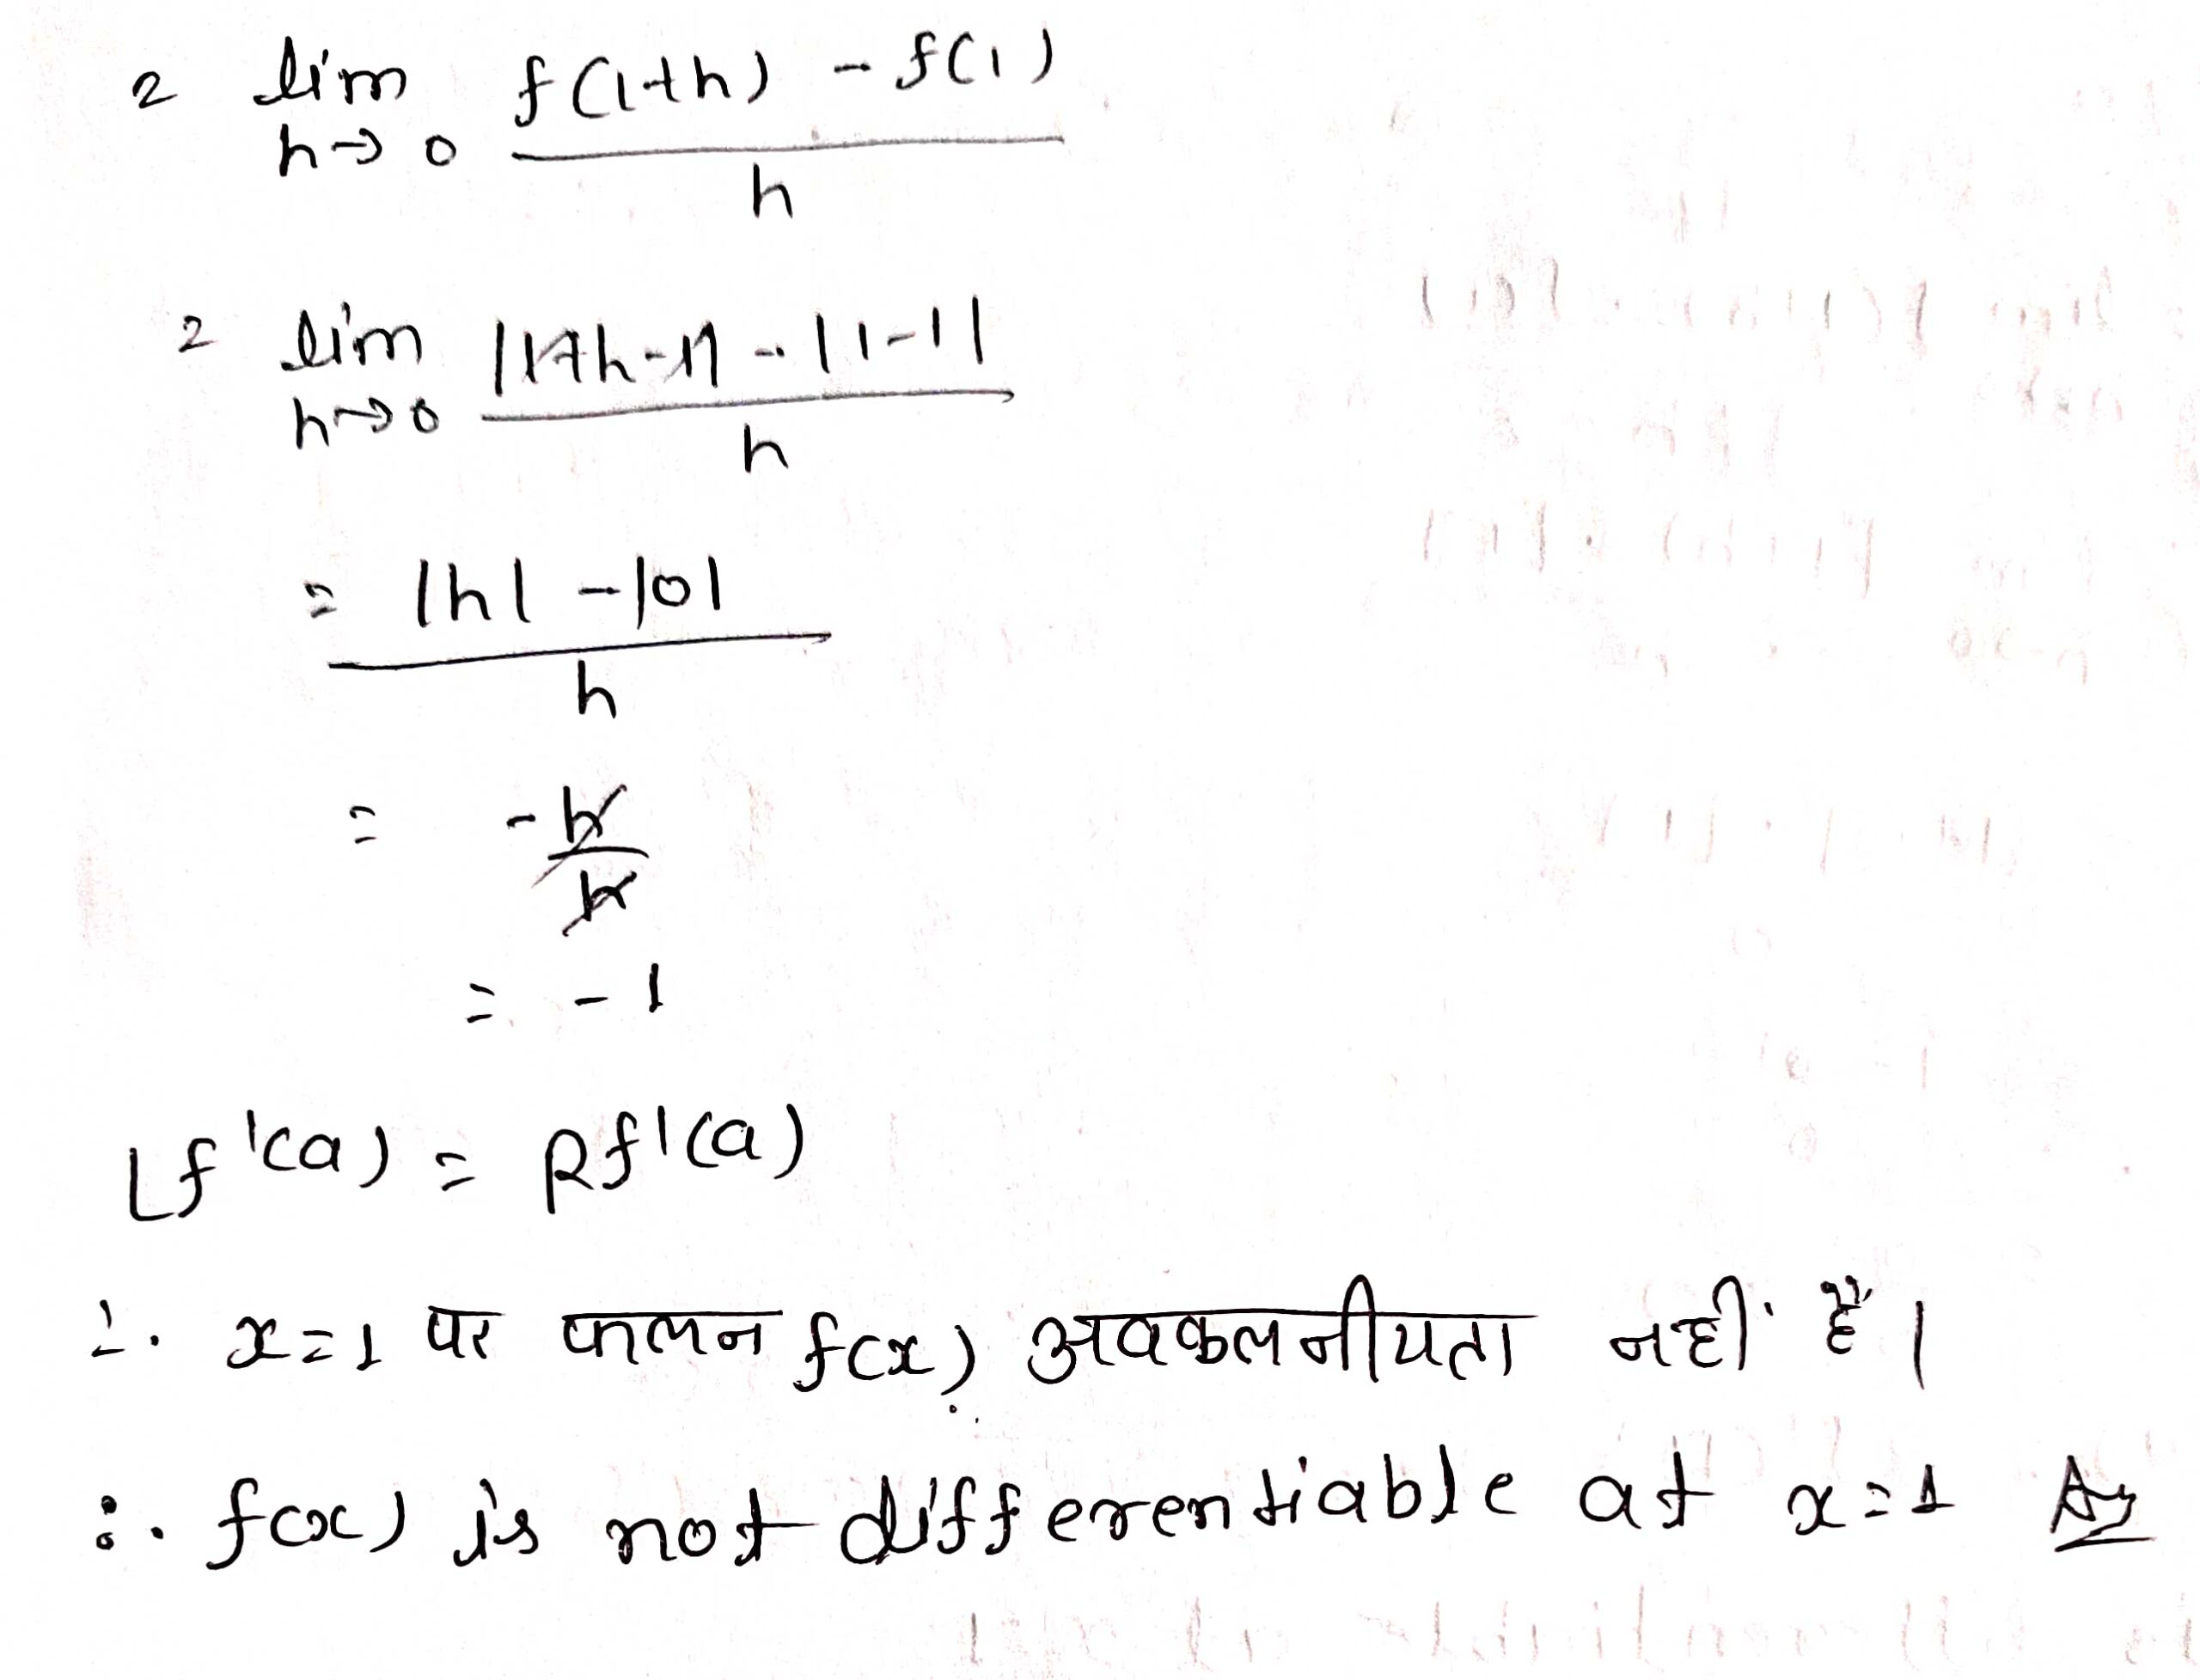 = lim f(1+h) - f(1)
h→0 h
= lim |1+h-1| - |1-1|
h→0 h
= |h| - |0|
h
= -h
h
= -1
Lf'(a) = Rf'(a)
∴ x=1 पर फलन f(x) अवकलनीयता नहीं है।
∴ f(x) is not differentiable at x=1 Ans